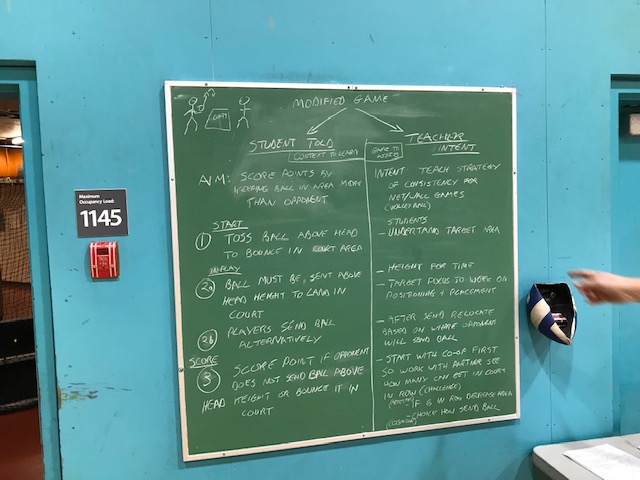 MODIFIED GAME
STUDENT TOLD
CONTEXT TO LEARN
AIM: SCORE POINTS BY
KEEPING BALL IN AREA MORE
THAN OPPONENT
START
1 TOSS BALL ABOVE HEAD
TO BOUNCE IN COURT AREA
INPLAY
2a BALL MUST BE SENT ABOVE
HEAD HEIGHT TO LAND IN
COURT
2b PLAYERS SEND BALL
ALTERNATIVELY
SCORE
3 SCORE POINT IF OPPONENT
DOES NOT SEND BALL ABOVE
HEAD HEIGHT OR BOUNCE IT IN
COURT
TEACHER
INTENT
GAME TO
ASSESS
INTENT TEACH STRATEGY
OF CONSISTENCY FOR
NET/WALL GAMES
(VOLLEYBALL)
STUDENTS
- UNDERSTAND TARGET AREA
- HEIGHT FOR TIME
- TARGET FOCUS TO WORK ON
POSITIONING + PLACEMENT
- AFTER SEND RELOCATE
BASED ON WHERE OPPONENT
WILL SEND BALL
- START WITH CO-OP FIRST
SO WORK WITH PARTNER SEE
HOW MANY CAN GET IN COURT
IN ROW (CHALLENGE)
IF 6 IN ROW DECREASE AREA
- CHOICE HOW SEND BALL
Maximum
Occupancy Load:
1145